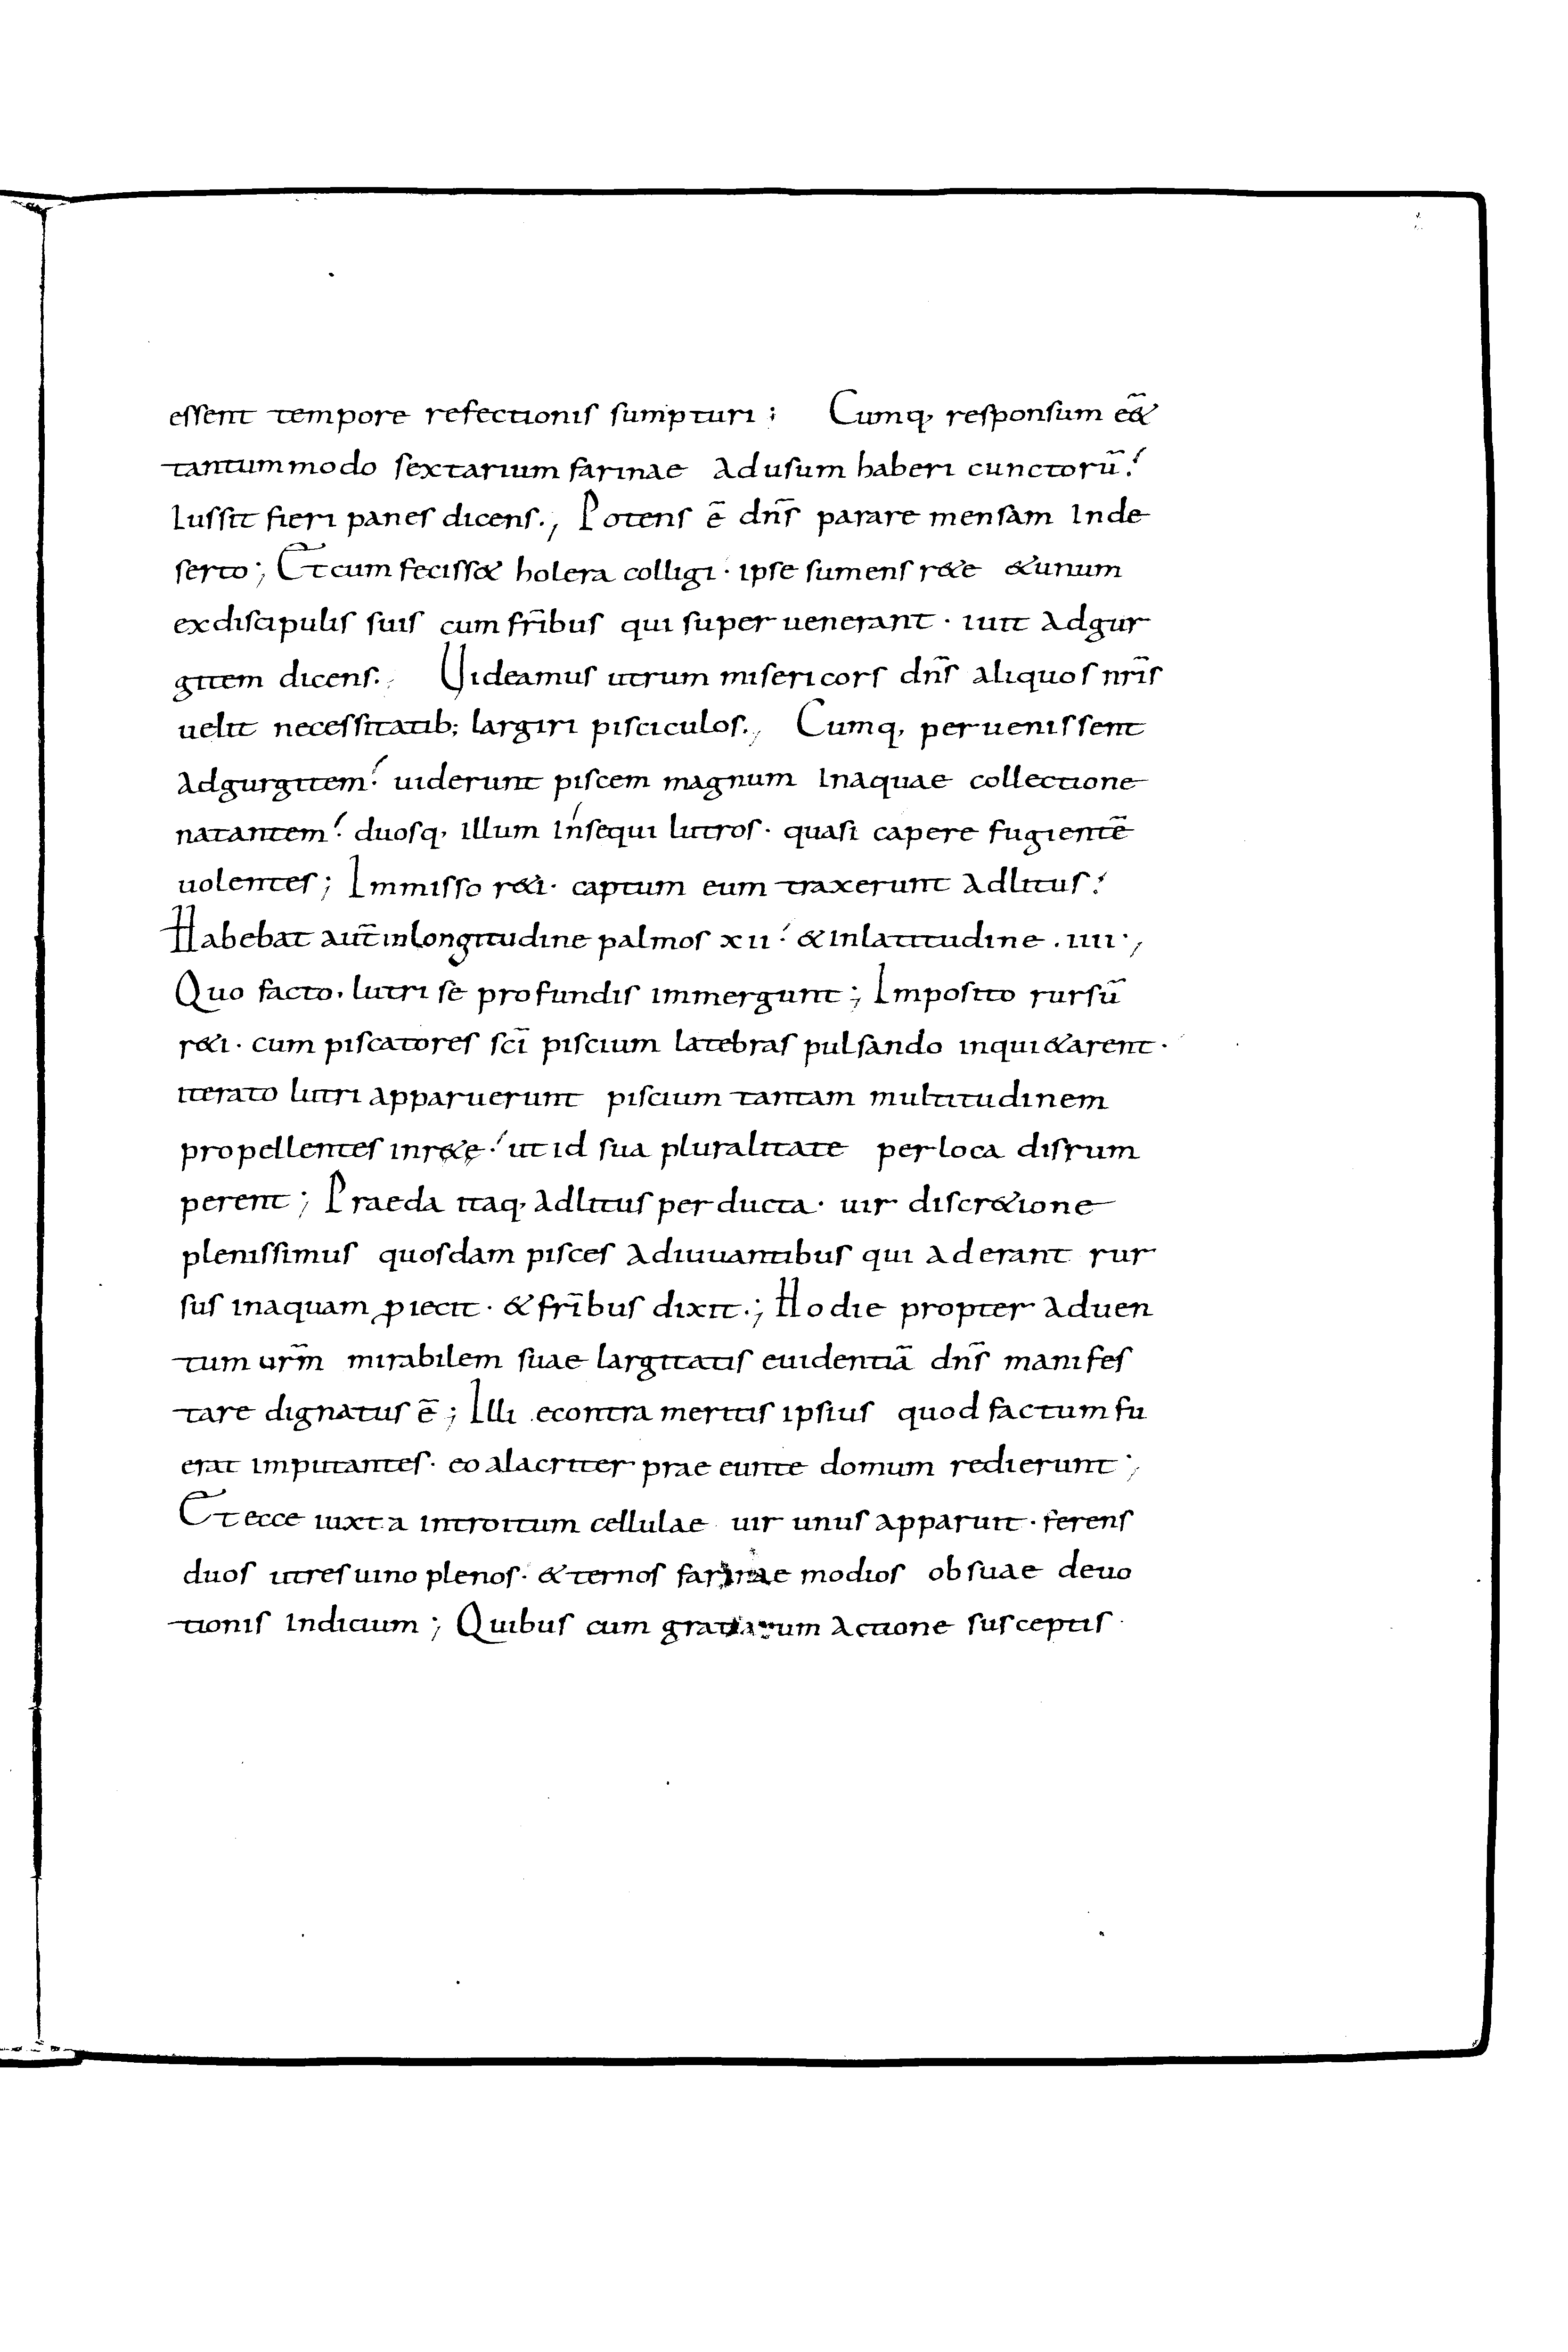 essent tempore refectionis sumpturi ; Cumq, responsum eē&
tantummodo sextarium farinae adusum haberi cunctorū.
Iussit fieri panes dicens., Potens ē dn̄s parare mensam Inde
serto; Et cum feciss& holera colligi · ipse sumens r&e &unum
exdiscipulis suis cum fr̄ibus qui super uenerant · iuit adgur
gitem dicens., Uideamus utrum misericors dn̄s aliquos nr̄is
uelit necessitatib; largiri pisciculos., Cumq, peruenissent
adgurgitem. uiderunt piscem magnum Inaquae collectione
natantem. duosq, illum Insequi lutros · quasi capere fugientē
uolentes; Immisso r&i · captum eum traxerunt adlitus.
Habebat aut̄ inlongitudine palmos xii. &inlatitudine .iiii·,
Quo facto, lutri se profundis immergunt; Imposito rursū
r&i · cum piscatores sc̄i piscium latebras pulsando inqui&arent ·
iterato lutri apparuerunt piscium tantam multitudinem
propellentes inr&ę. ut id sua pluralitate perloca disrum
perent; Praeda itaq, adlitus perducta · uir discr&ione
plenissimus quosdam pisces adiuuantibus qui aderant rur
sus inaquam ꝓiecit · &fr̄ibus dixit.; Hodie propter aduen
tum ur̄m mirabilem suae largitatis euidentiā dn̄s manifes
tare dignatus ē; Illi econtra meritis ipsius quod factum fu
erat imputantes · eo alacriter praeeunte domum redierunt;
Et ecce iuxta introitum cellulae uir unus apparuit · ferens
duos utres uino plenos · &ternos farinae modios obsuae deuo
tionis Indicium; Quibus cum gratiarum actione susceptis ·